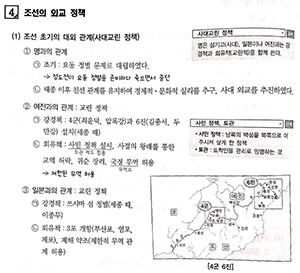 4 조선의 외교 정책
(1) 조선 초기의 대외 관계(사대교린 정책)
사대교린 정책
명은 섬기고(사대), 일본이나 여진과는 강
경책과 회유책(교린책)을 함께 쓴다.
① 명과의 관계
㉠ 초기 : 요동 정벌 문제로 대립하였다.
→ 정도전이 요동 정벌을 준비하다 죽으면서 중단
㉡ 태종 이후 친선 관계를 유지하며 경제적·문화적 실리를 추구, 사대 외교를 추진하였다.
② 여진과의 관계 : 교린 정책
㉠ 강경책 : 4군(최윤덕, 압록강)과 6진(김종서, 두
만강) 설치(세종 때)
㉡ 회유책 : 사민 정책 실시, 사절의 왕래를 통한
토관 제도 활용
교역 허락, 귀순 장려, 국경 무역 허용
무역소
→ 제한된 무역 허용
사민 정책, 토관
• 사민 정책 : 남쪽의 백성을 북쪽으로 이
주시켜 살게 한 정책
• 토관 : 토착인을 관리로 임명하는 것
③ 일본과의 관계 : 교린 정책
㉠ 강경책 : 쓰시마 섬 정벌(세종 때,
이종무)
㉡ 회유책 : 3포 개항(부산포, 염포,
제포), 계해 약조(제한적 무역 관
계 허용)
4군
6진
[4군 6진]